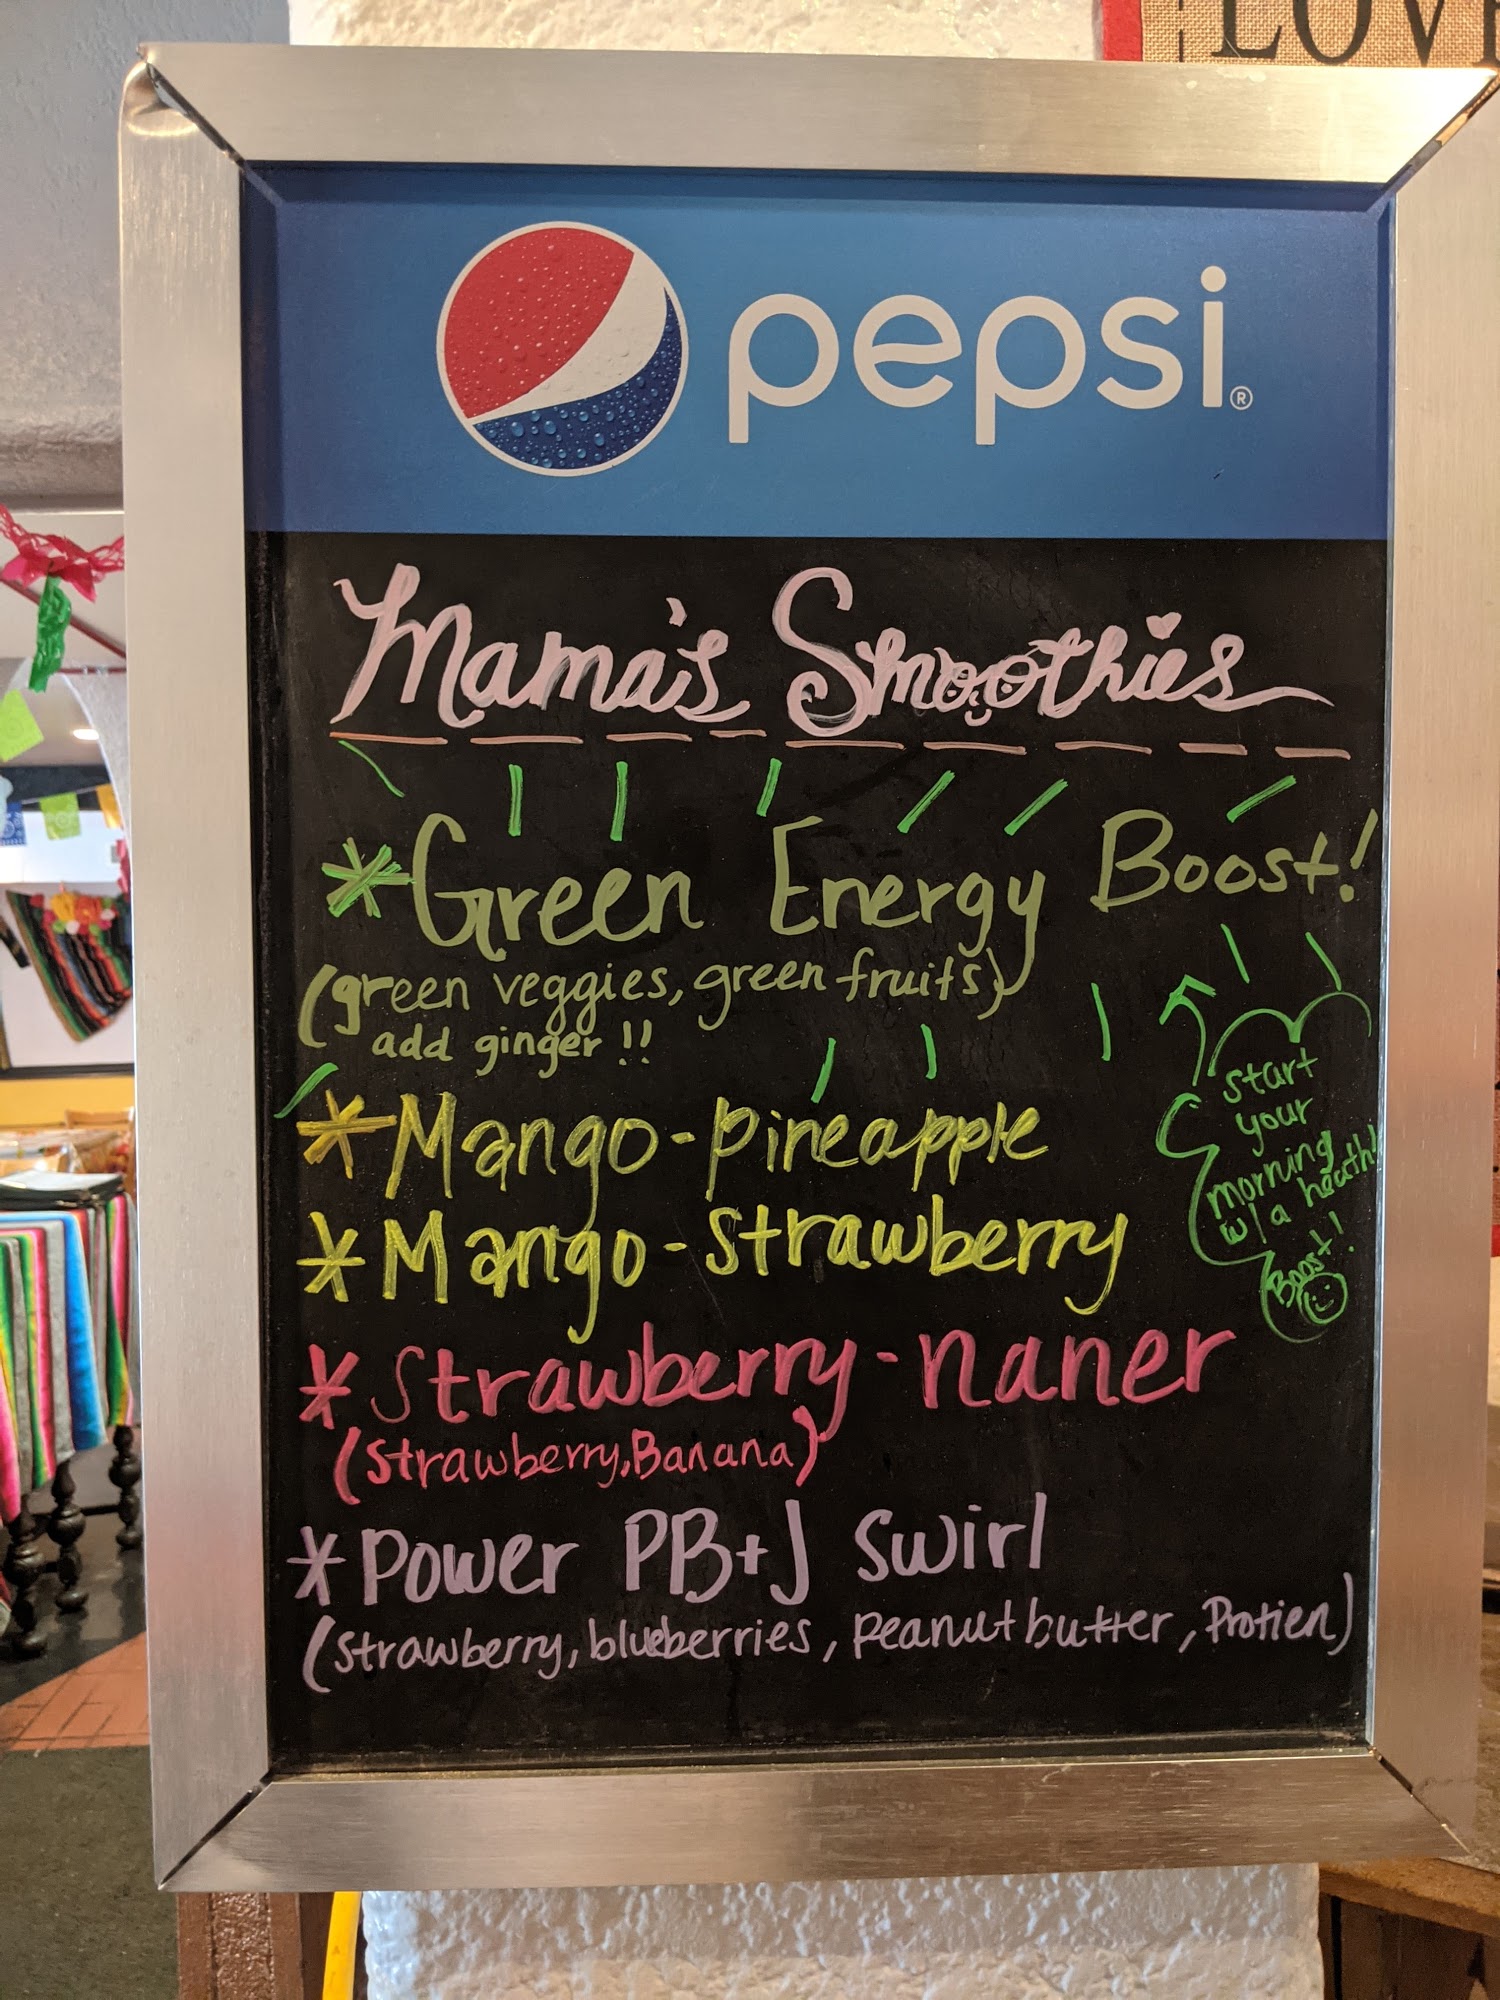 LOVE
pepsi®
Mama's Smoothies
*Green Energy Boost!
(green veggies, green fruits)
add ginger !!
*Mango-pineapple
*Mango-strawberry
*Strawberry-naner
(Strawberry, Banana)
*Power PB+J swirl
(strawberry, blueberries, peanut butter, Protien)
start
your
morning
w/ a health
Boost!